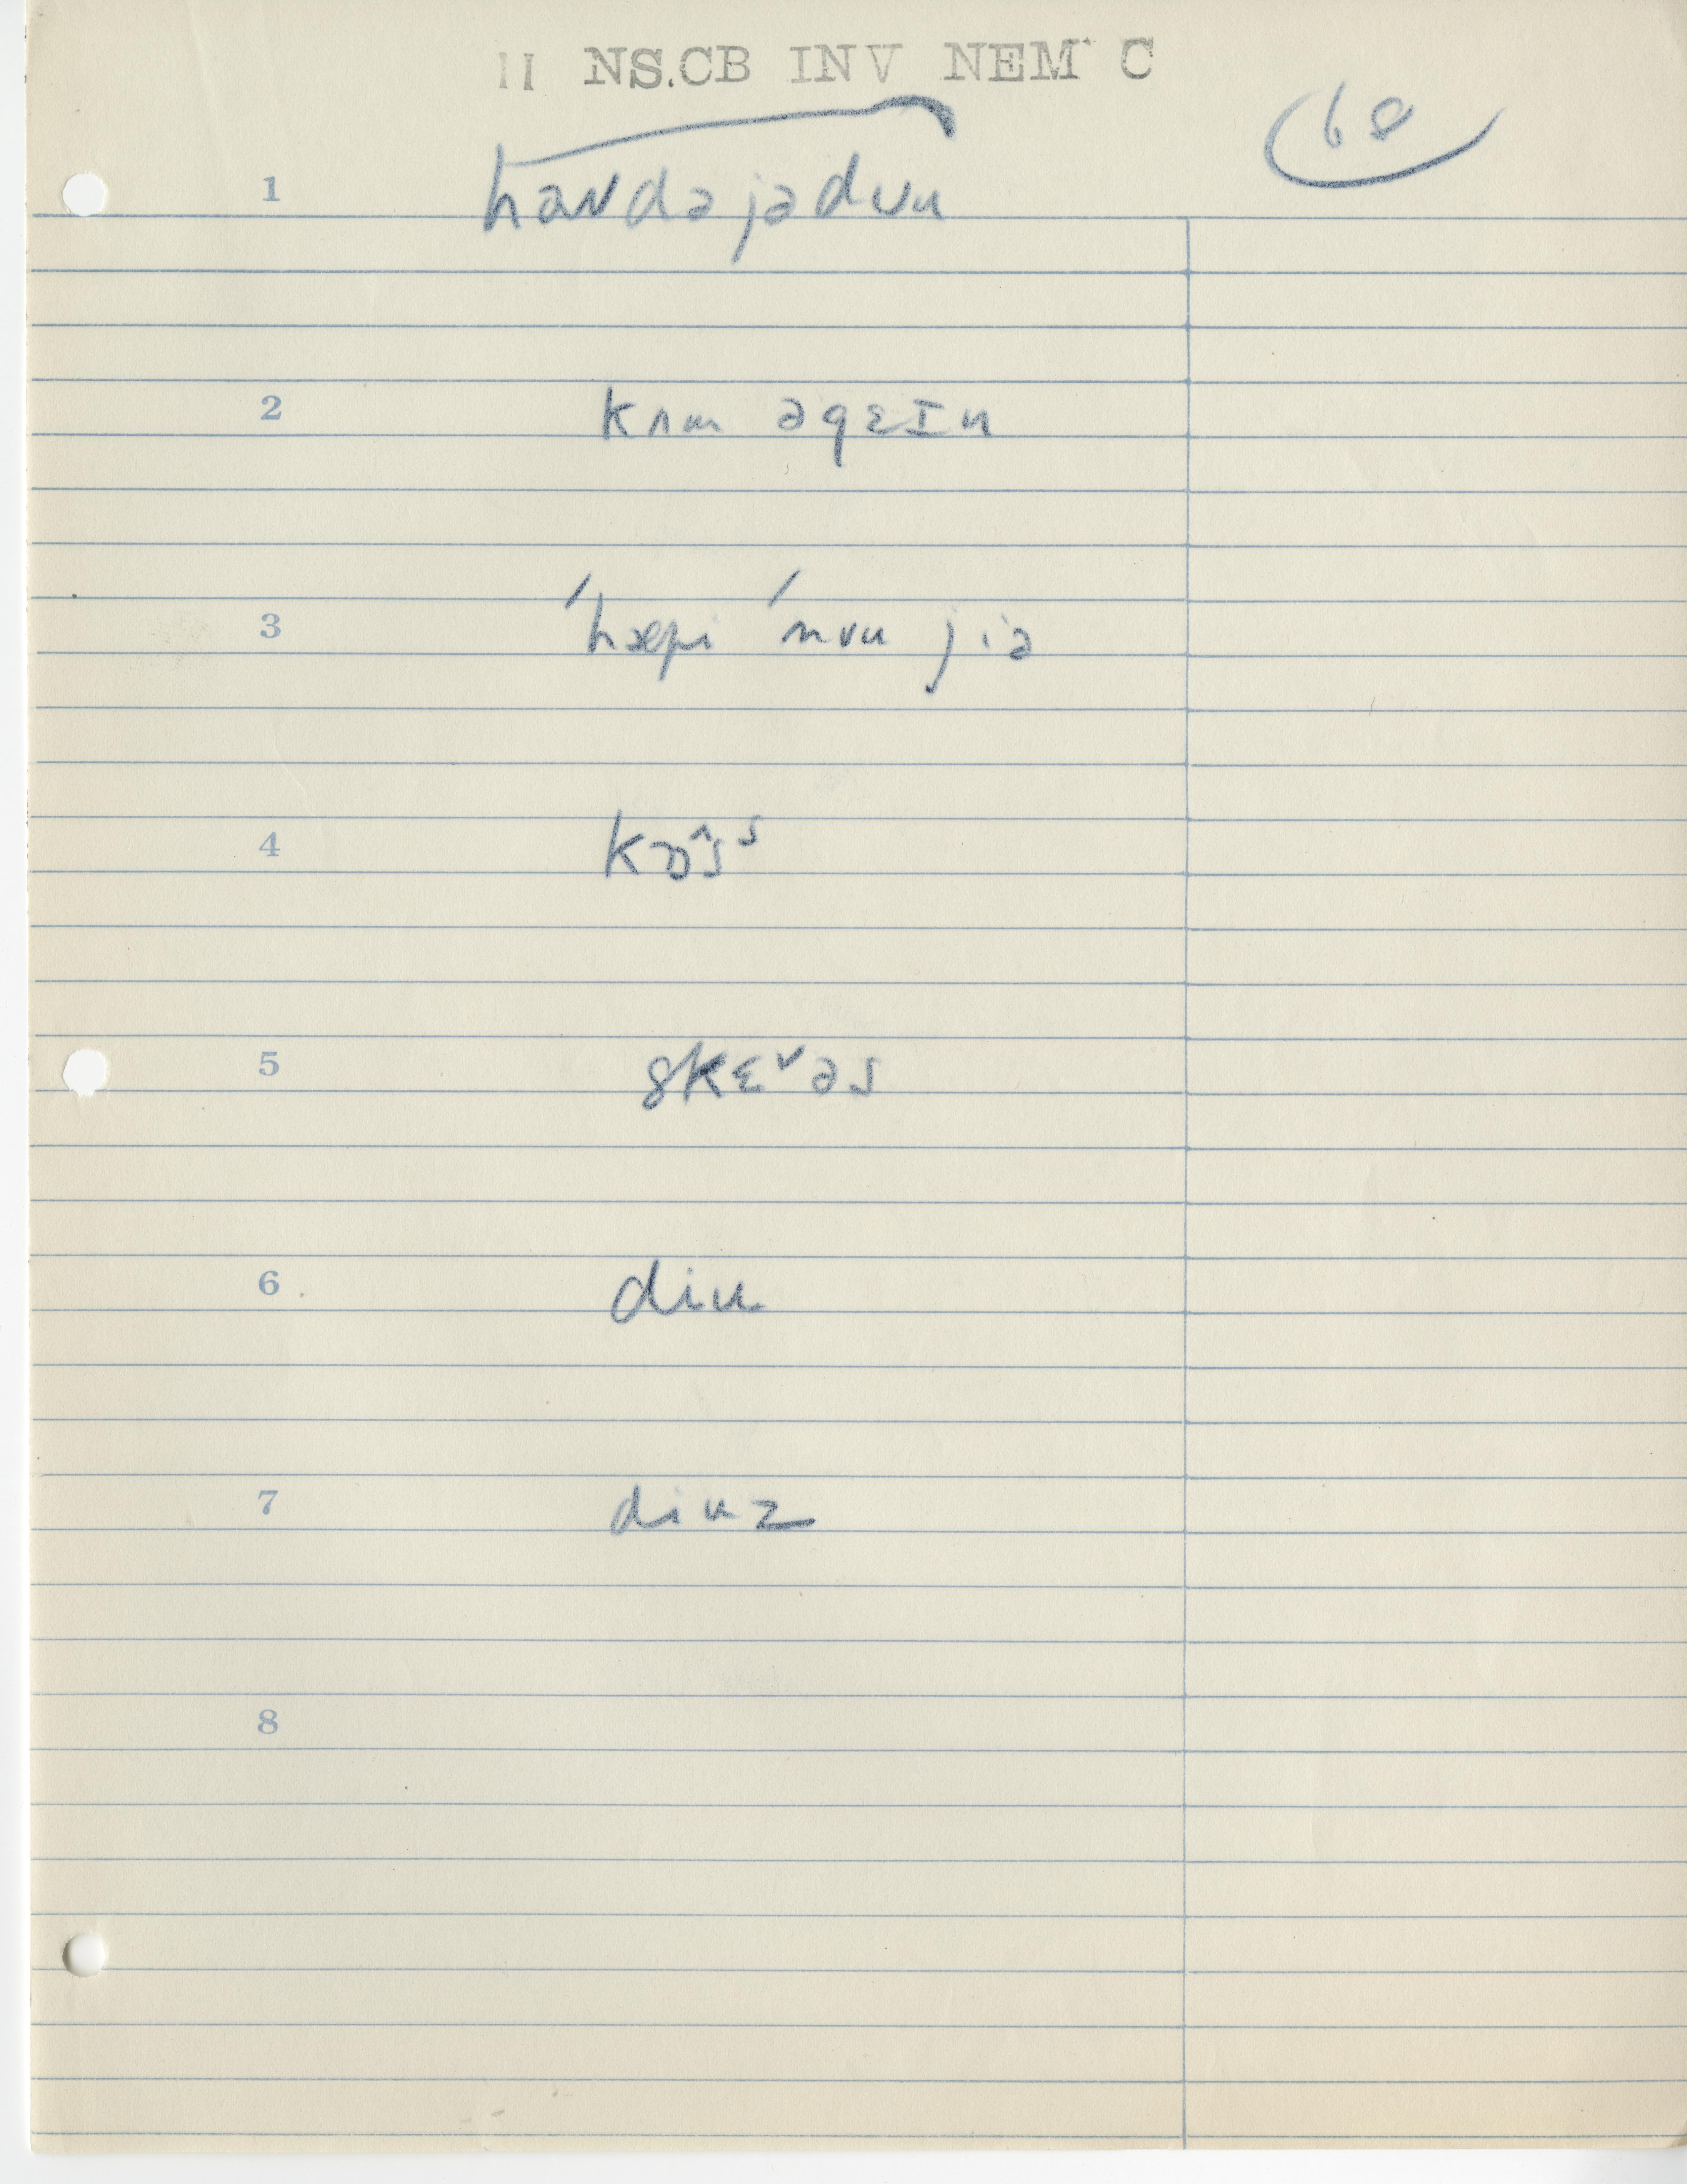 II NS.CB INV NEM C
68
1 haʊdəjədʊu
2 kʌm əgɛɪn
3 ˈhæpi ˈnuu jiə
4 kɒ^s s
5 skɛˇəs
6 diu
7 diuz
8